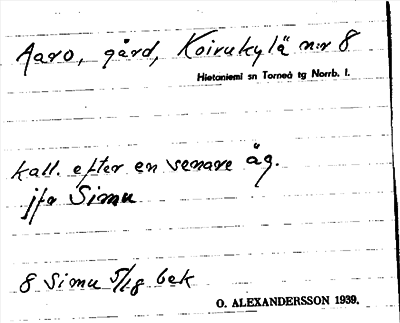 Aaro, gård, Koivukylä n:r 8
Hietaniemi sn Torneå tg Norrb. l.
kall. efter en senare äg.
jfr Simu
8 Simu 5/18 bek
O. ALEXANDERSSON 1939.